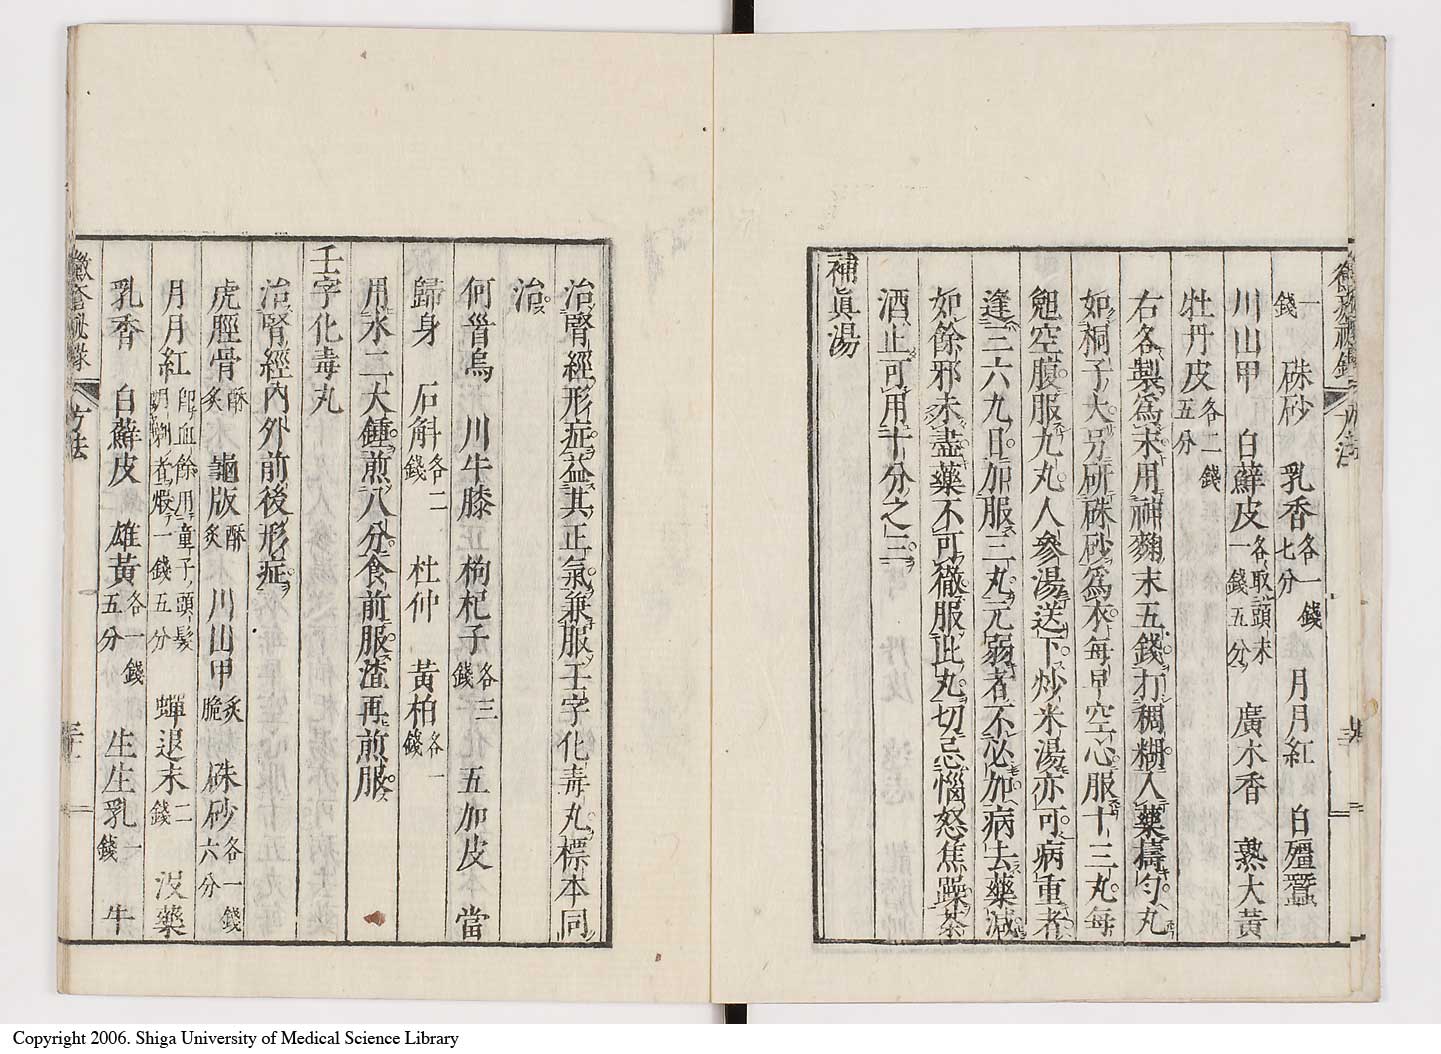 一錢 硃砂 乳香各一錢七分 月月紅 白殭蠶
川山甲 白蘚皮各取頭末一錢五分 廣木香 熟大黃
牡丹皮各二錢五分
右各製爲末用神麯末五錢打稠糊入藥擣勻丸
如桐子大另研硃砂爲衣每早空心服十三丸每
朝空腹服九丸人參湯送下炒米湯亦可病重者
逢三六九日加服三丸元弱者不必加病去藥減
如餘邪未盡藥不可徹服此丸切忌惱怒焦躁茶
酒止可用十分之三
補眞湯
治腎經形症益其正氣兼服壬字化毒丸標本同
治
何首烏 川牛膝 枸杞子各三錢 五加皮 當
歸身 石斛各二錢 杜仲 黃柏各一錢
用水二大鍾煎八分食前服渣再煎服
壬字化毒丸
治腎經內外前後形症
虎脛骨酥炙 龜版酥炙 川山甲炙脆 硃砂各一錢六分
月月紅卽血餘用童子頭髮一錢五分 蟬退末二錢 沒藥
乳香 白蘚皮 雄黃各一錢五分 生生乳一錢 牛
黴瘡秘錄 方法
Copyright 2006. Shiga University of Medical Science Library